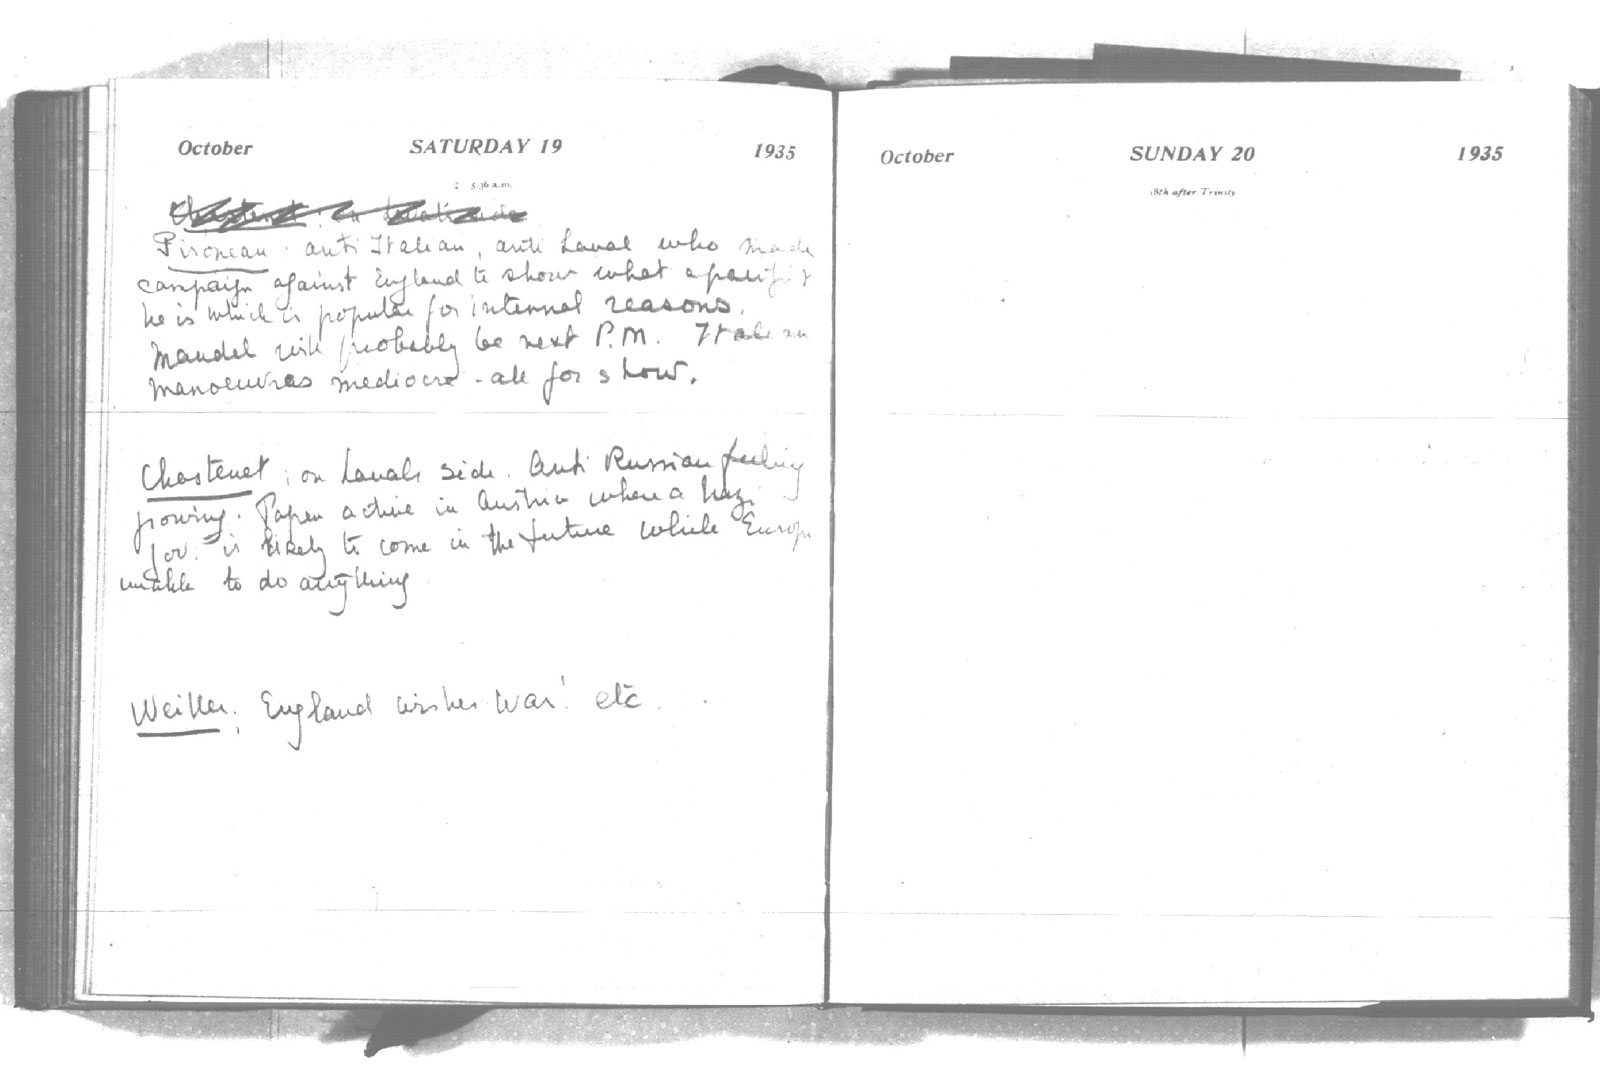 October SATURDAY 19 1935
5.36 a.m.
Pironeau. anti Italian, anti Laval who made
campaign against England to show what a pacifist
he is which is popular for internal reasons.
Mandel will probably be next P.M. Italian
manoeuvres mediocre - all for show.
Chastenet; on Lavals side. Anti Russian feeling
growing. Papen active in Austria where a Nazi
Gov. is likely to come in the future while Europe
unable to do anything
Weiller; England wishes War! etc.
October SUNDAY 20 1935
18th after Trinity